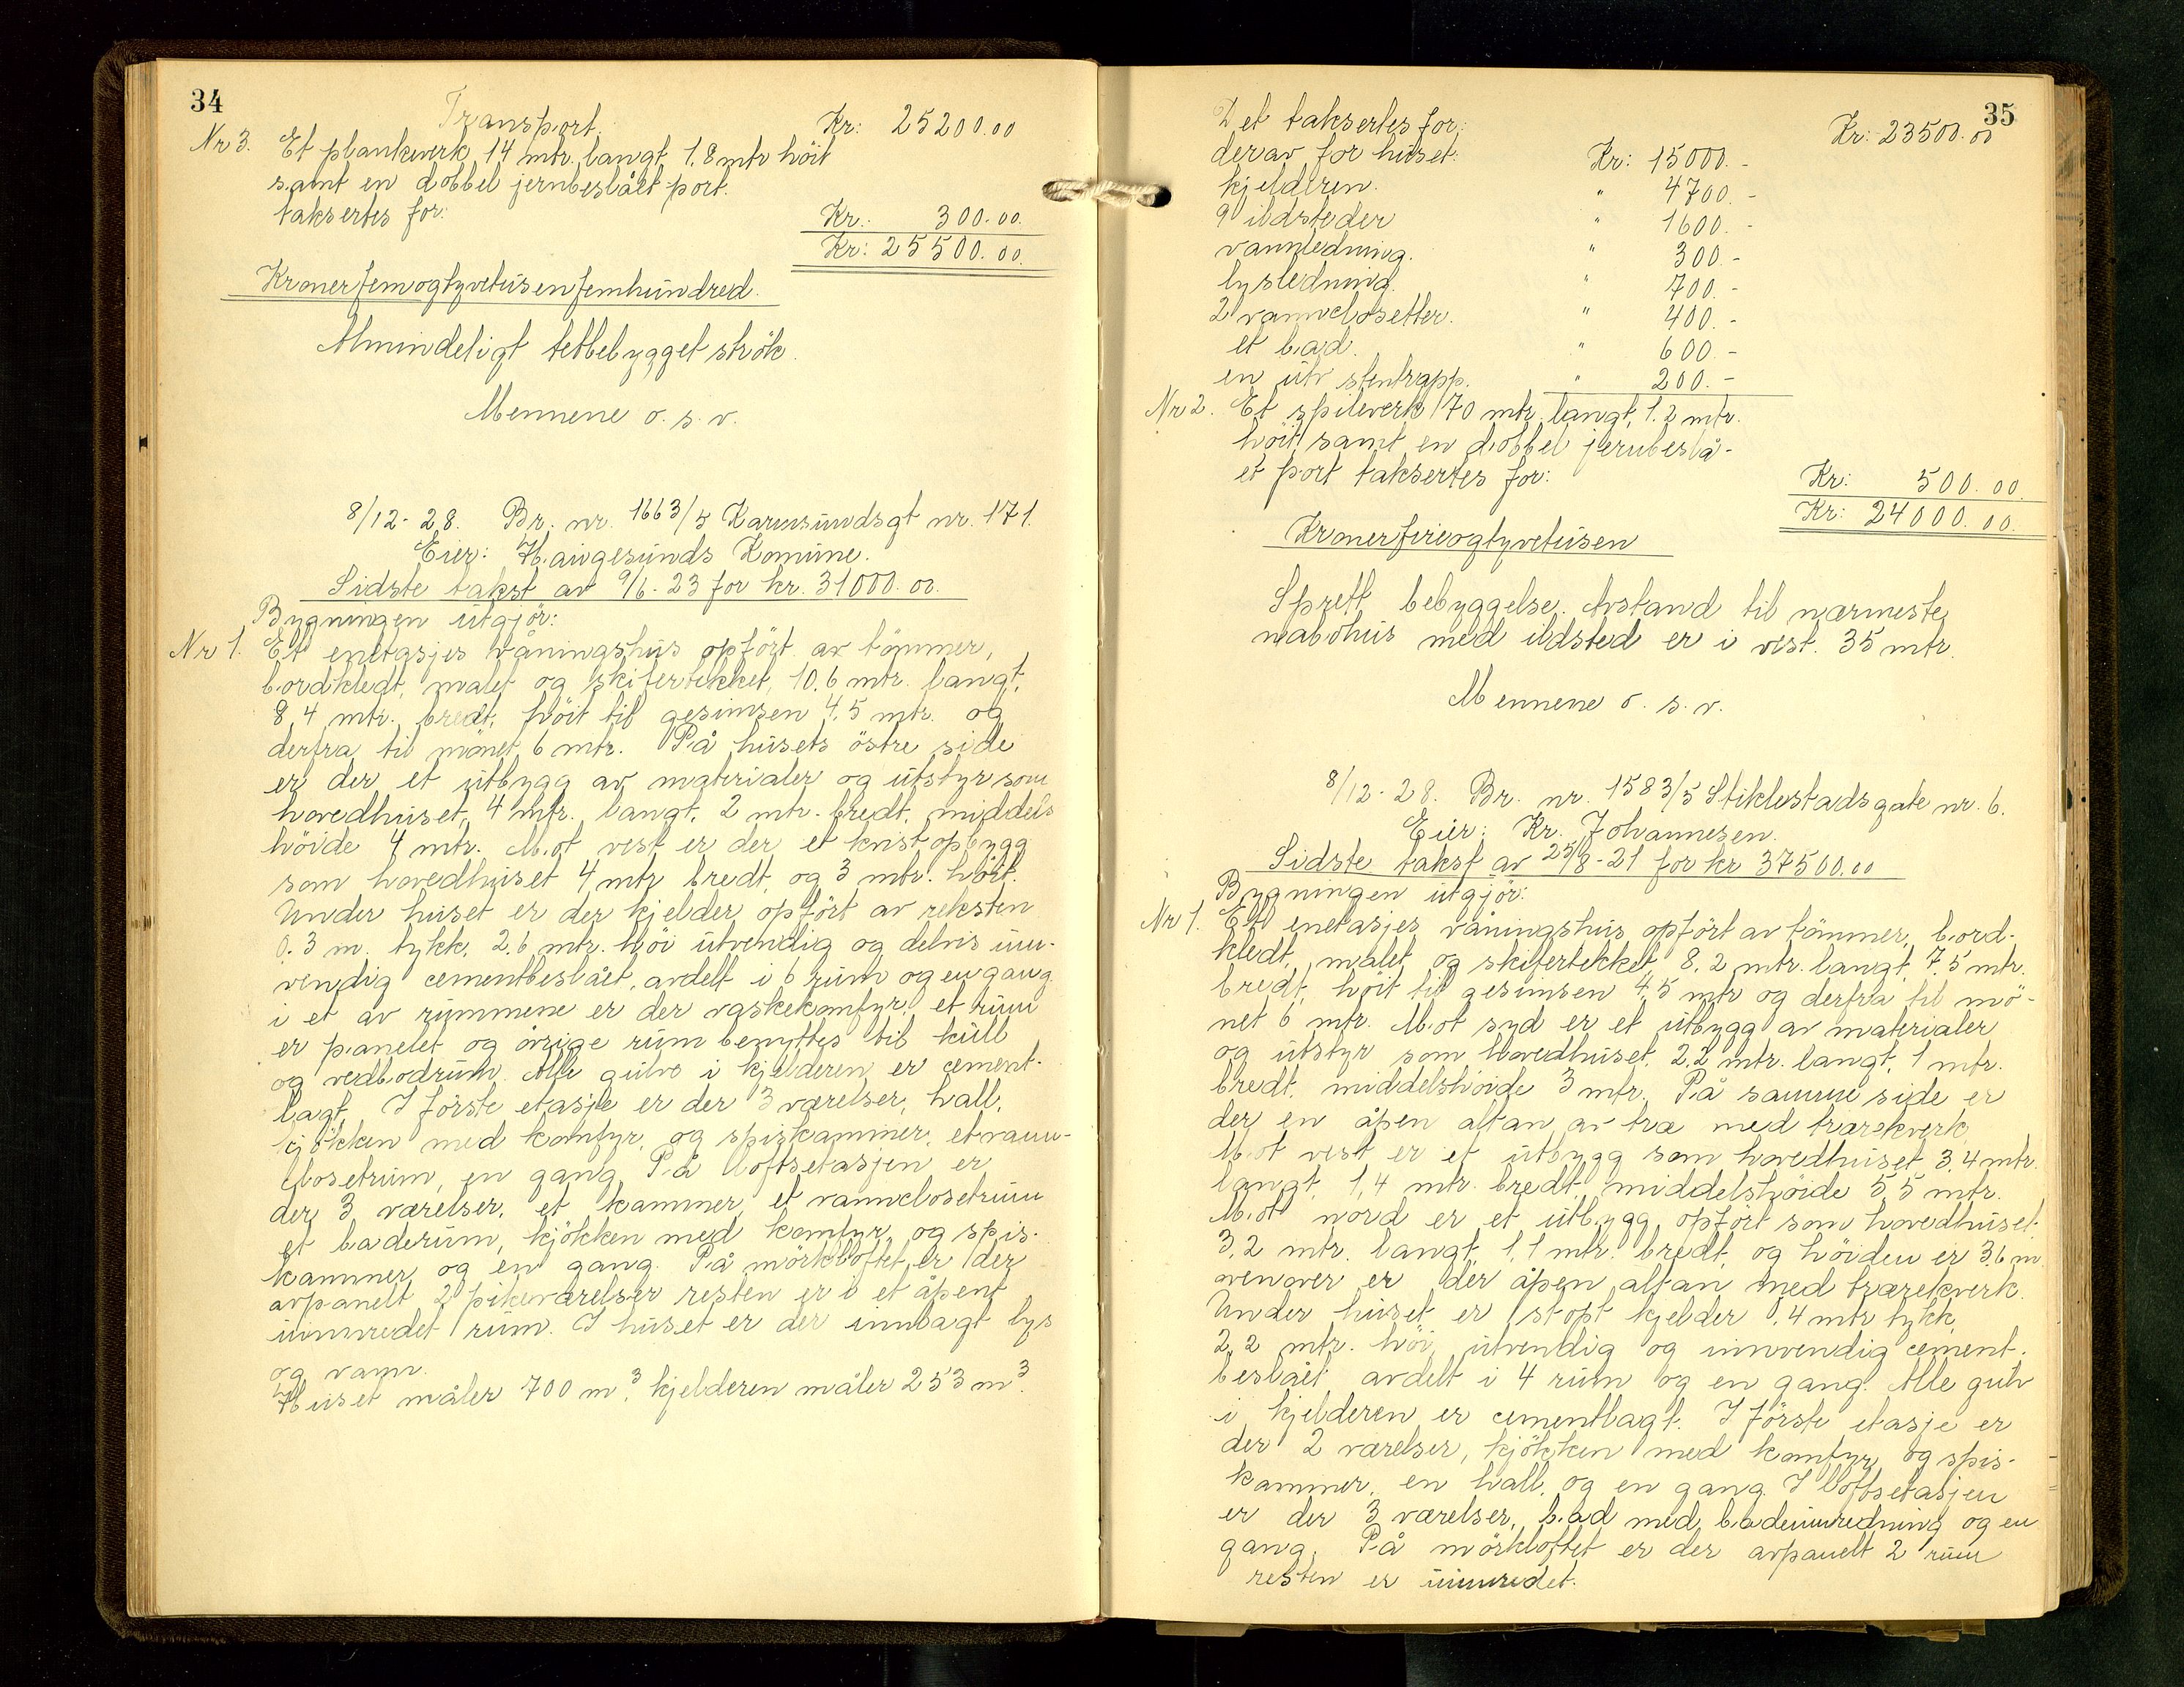 34
Transport. Kr: 25200.00
Nr 3. Et plankeverk 14 mtr. langt 1.8 mtr höit
samt en dobbel jernbeslået port.
taksertes for: Kr: 300.00.
Kr: 25500.00.
Kroner femogtyvetusenfemhundred.
Almindeligt tettebygget strök.
Mennene o. s. v.
8/12-28. Br. nr. 1663/5 Karmsundsgt nr. 171.
Eier: Haugesunds Komune.
Sidste takst av 9/6-23 for kr. 31000.00.
Bygningen utgjör:
Nr 1. Et enetasjes våningshus opfört av tömmer,
bordkledt, malet og skifertekket, 10.6 mtr. langt,
8,4 mtr. bredt, höit til gesimsen 4,5 mtr. og
derfra til mönet 6 mtr. På husets östre side
er der et utbygg av materialer og utstyr som
hovedhuset, 4 mtr. langt, 2 mtr. bredt, middels
höide 4 mtr. Mot vest er der et kvistopbygg
som hovedhuset 4 mtr bredt, og 3 mtr. höit.
Under huset er der kjelder opfört av reksten
0.3 m. tykk, 2.6 mtr. höi utvendig og delvis inn-
vendig cementbeslået, avdelt i 6 rum og en gang.
i et av rummene er der vaskekomfyr, et rum
er panelet og övrige rum benyttes til kull
og vedbodrum. Alle gulve i kjelderen er cement-
lagt. I förste etasje er der 3 værelser, hall,
kjökken med komfyr, og spiskammer, et vann-
closetrum, en gang. På loftsetasjen er
der 3 værelser, et kammer, et vannclosetrum
et baderum, kjökken med komfyr, og spis-
kammer og en gang. På mörkloftet er der
avpanelt 2 pikeværelser resten er i et åpent
uinnredet rum. I huset er der innlagt lys
og vann.
Huset måler 700 m³, kjelderen måler 253 m³.
35
Det taksertes for: Kr: 23500.00
derav for huset: Kr: 15000.-
kjelderen. " 4700.-
9 ildsteder " 1600.-
vannledning. " 300.-
lysledning. " 700.-
2 vannclosetter. " 400.-
et bad. " 600.-
en utv stentrapp. " 200.-
Nr 2. Et spileverk 170 mtr. langt, 1.2 mtr.
höit, samt en dobbel jernbeslå-
et port taksertes for: Kr: 500.00.
Kr: 24000.00.
Kroner fireogtyvetusen
Sprett bebyggelse. Avstand til nærmeste
nabohus med ildsted er i vest. 35 mtr.
Mennene o. s. v.
8/12-28. Br. nr. 1583/5 Stiklestadsgate nr. 6.
Eier: Kr. Johannesen.
Sidste takst av 25/8-21 for kr 37500.00
Bygningen utgjör:
Nr 1. Et enetasjes våningshus opfört av tömmer, bord-
kledt, malet og skifertekket, 8,2 mtr. langt, 7,5 mtr.
bredt, höit til gesimsen 4,5 mtr og derfra til mö-
net 6 mtr. Mot syd er et utbygg av materialer
og utstyr som hovedhuset, 2,2 mtr. langt, 1 mtr.
bredt, middelshöide 3 mtr. På samme side er
der en åpen altan av træ med trærekverk,
Mot vest er et utbygg som hovedhuset, 3,4 mtr.
langt, 1,4 mtr. bredt, middelshöide 5,5 mtr.
Mot nord er et utbygg opfört som hovedhuset,
3,2 mtr. langt, 1,1 mtr. bredt, og höiden er 3,6 m.
ovenover er der åpen altan med trærekverk.
Under huset er stöpt kjelder 0,4 mtr tykk,
2,2 mtr. höi, utvendig og innvendig cement-
beslået avdelt i 4 rum og en gang. Alle gulv
i kjelderen er cementlagt. I förste etasje er
der 2 værelser, kjökken med komfyr og spis-
kammer, en hall, og en gang. I loftsetasjen
er der 3 værelser, bad med badeinnredning og en
gang. På mörkloftet er der avpanelt 2 rum
resten er uinnredet.